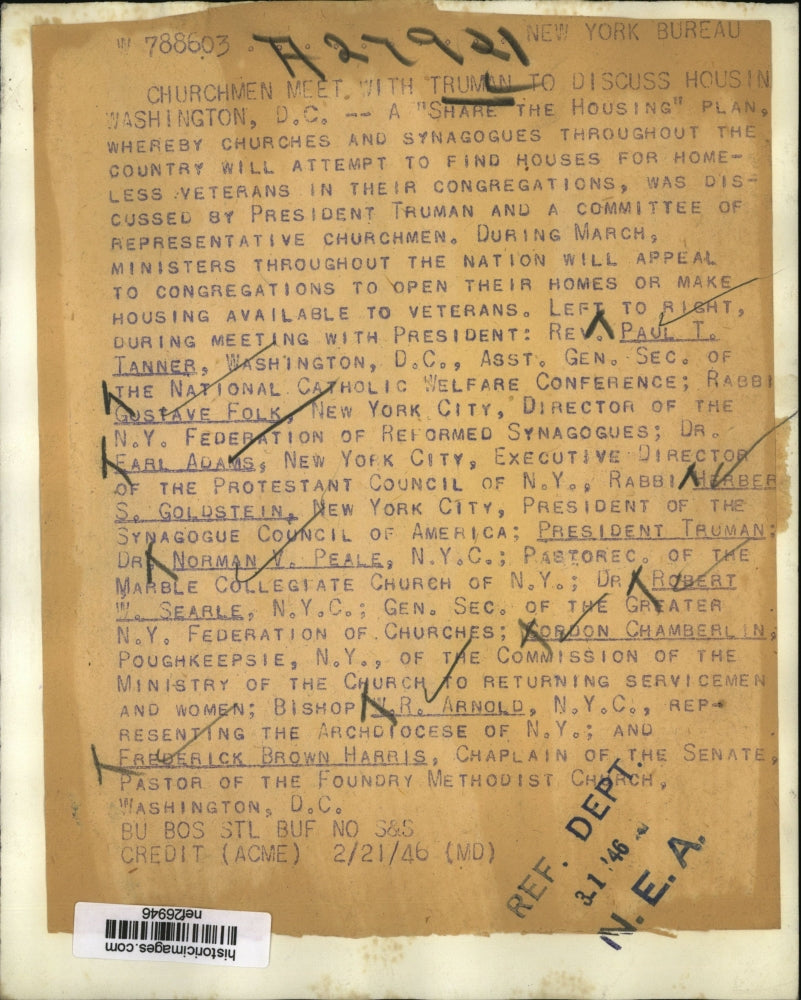 W 788603
A27921
NEW YORK BUREAU
CHURCHMEN MEET WITH TRUMAN TO DISCUSS HOUSIN
WASHINGTON, D.C. -- A "SHARE THE HOUSING" PLAN,
WHEREBY CHURCHES AND SYNAGOGUES THROUGHOUT THE
COUNTRY WILL ATTEMPT TO FIND HOUSES FOR HOME-
LESS VETERANS IN THEIR CONGREGATIONS, WAS DIS-
CUSSED BY PRESIDENT TRUMAN AND A COMMITTEE OF
REPRESENTATIVE CHURCHMEN. DURING MARCH,
MINISTERS THROUGHOUT THE NATION WILL APPEAL
TO CONGREGATIONS TO OPEN THEIR HOMES OR MAKE
HOUSING AVAILABLE TO VETERANS. LEFT TO RIGHT,
DURING MEETING WITH PRESIDENT: REV. PAUL T.
TANNER, WASHINGTON, D.C., ASST. GEN. SEC. OF
THE NATIONAL CATHOLIC WELFARE CONFERENCE; RABBI
GUSTAVE FOLK, NEW YORK CITY, DIRECTOR OF THE
N.Y. FEDERATION OF REFORMED SYNAGOGUES; DR.
EARL ADAMS, NEW YORK CITY, EXECUTIVE DIRECTOR
OF THE PROTESTANT COUNCIL OF N.Y., RABBI HERBER
S. GOLDSTEIN, NEW YORK CITY, PRESIDENT OF THE
SYNAGOGUE COUNCIL OF AMERICA; PRESIDENT TRUMAN;
DR. NORMAN V. PEALE, N.Y.C.; PASTOREC. OF THE
MARBLE COLLEGIATE CHURCH OF N.Y.; DR. ROBERT
W. SEARLE, N.Y.C.; GEN. SEC. OF THE GREATER
N.Y. FEDERATION OF CHURCHES; GORDON CHAMBERLIN,
POUGHKEEPSIE, N.Y., OF THE COMMISSION OF THE
MINISTRY OF THE CHURCH TO RETURNING SERVICEMEN
AND WOMEN; BISHOP W.R. ARNOLD, N.Y.C., REP-
RESENTING THE ARCHDIOCESE OF N.Y.; AND
FREDERICK BROWN HARRIS, CHAPLAIN OF THE SENATE,
PASTOR OF THE FOUNDRY METHODIST CHURCH,
WASHINGTON, D.C.
BU BOS STL BUF NO S&S
CREDIT (ACME) 2/21/46 (MD)
REF. DEPT.
3.1.'46
N. E. A.
historicimages.com
nef26946